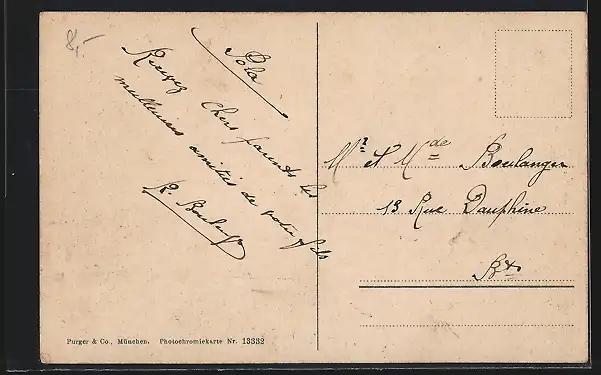 8,-
Pola
Recevez chers parents les
meilleures amitiés de votre fils
R. Boulanger
Mr et Mde Boulanger
13 Rue Dauphine
Bx
Purger & Co., München. Photochromiekarte Nr. 13332